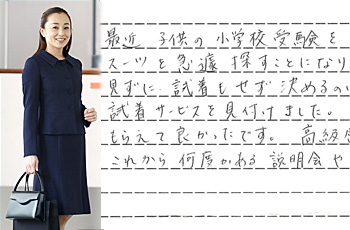 最近 子供の 小学校 受験を
スーツを 急遽 探すことになり
見ずに 試着もせず 決めるの
試着サービスを見付けました。
もらえて良かったです。 高級
これから 何度かある 説明会や